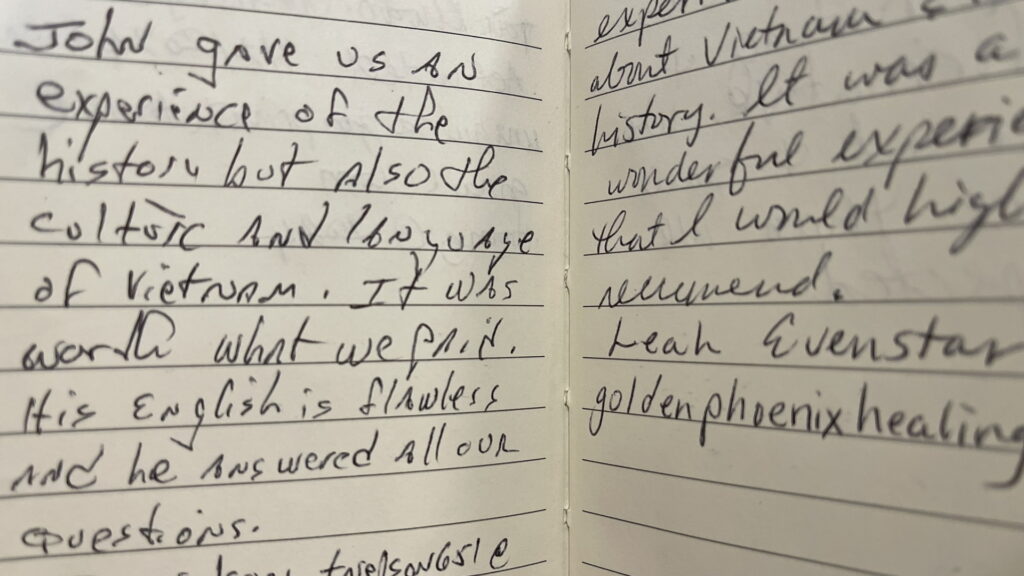 John gave us an
experience of the
history but also the
culture and language
of Vietnam. It was
worth what we paid.
His English is flawless
and he answered all our
questions.
about Vietnam
history. It was a
wonderful
that I would
recommend.
Leah Evenstar
goldenphoenixhealing